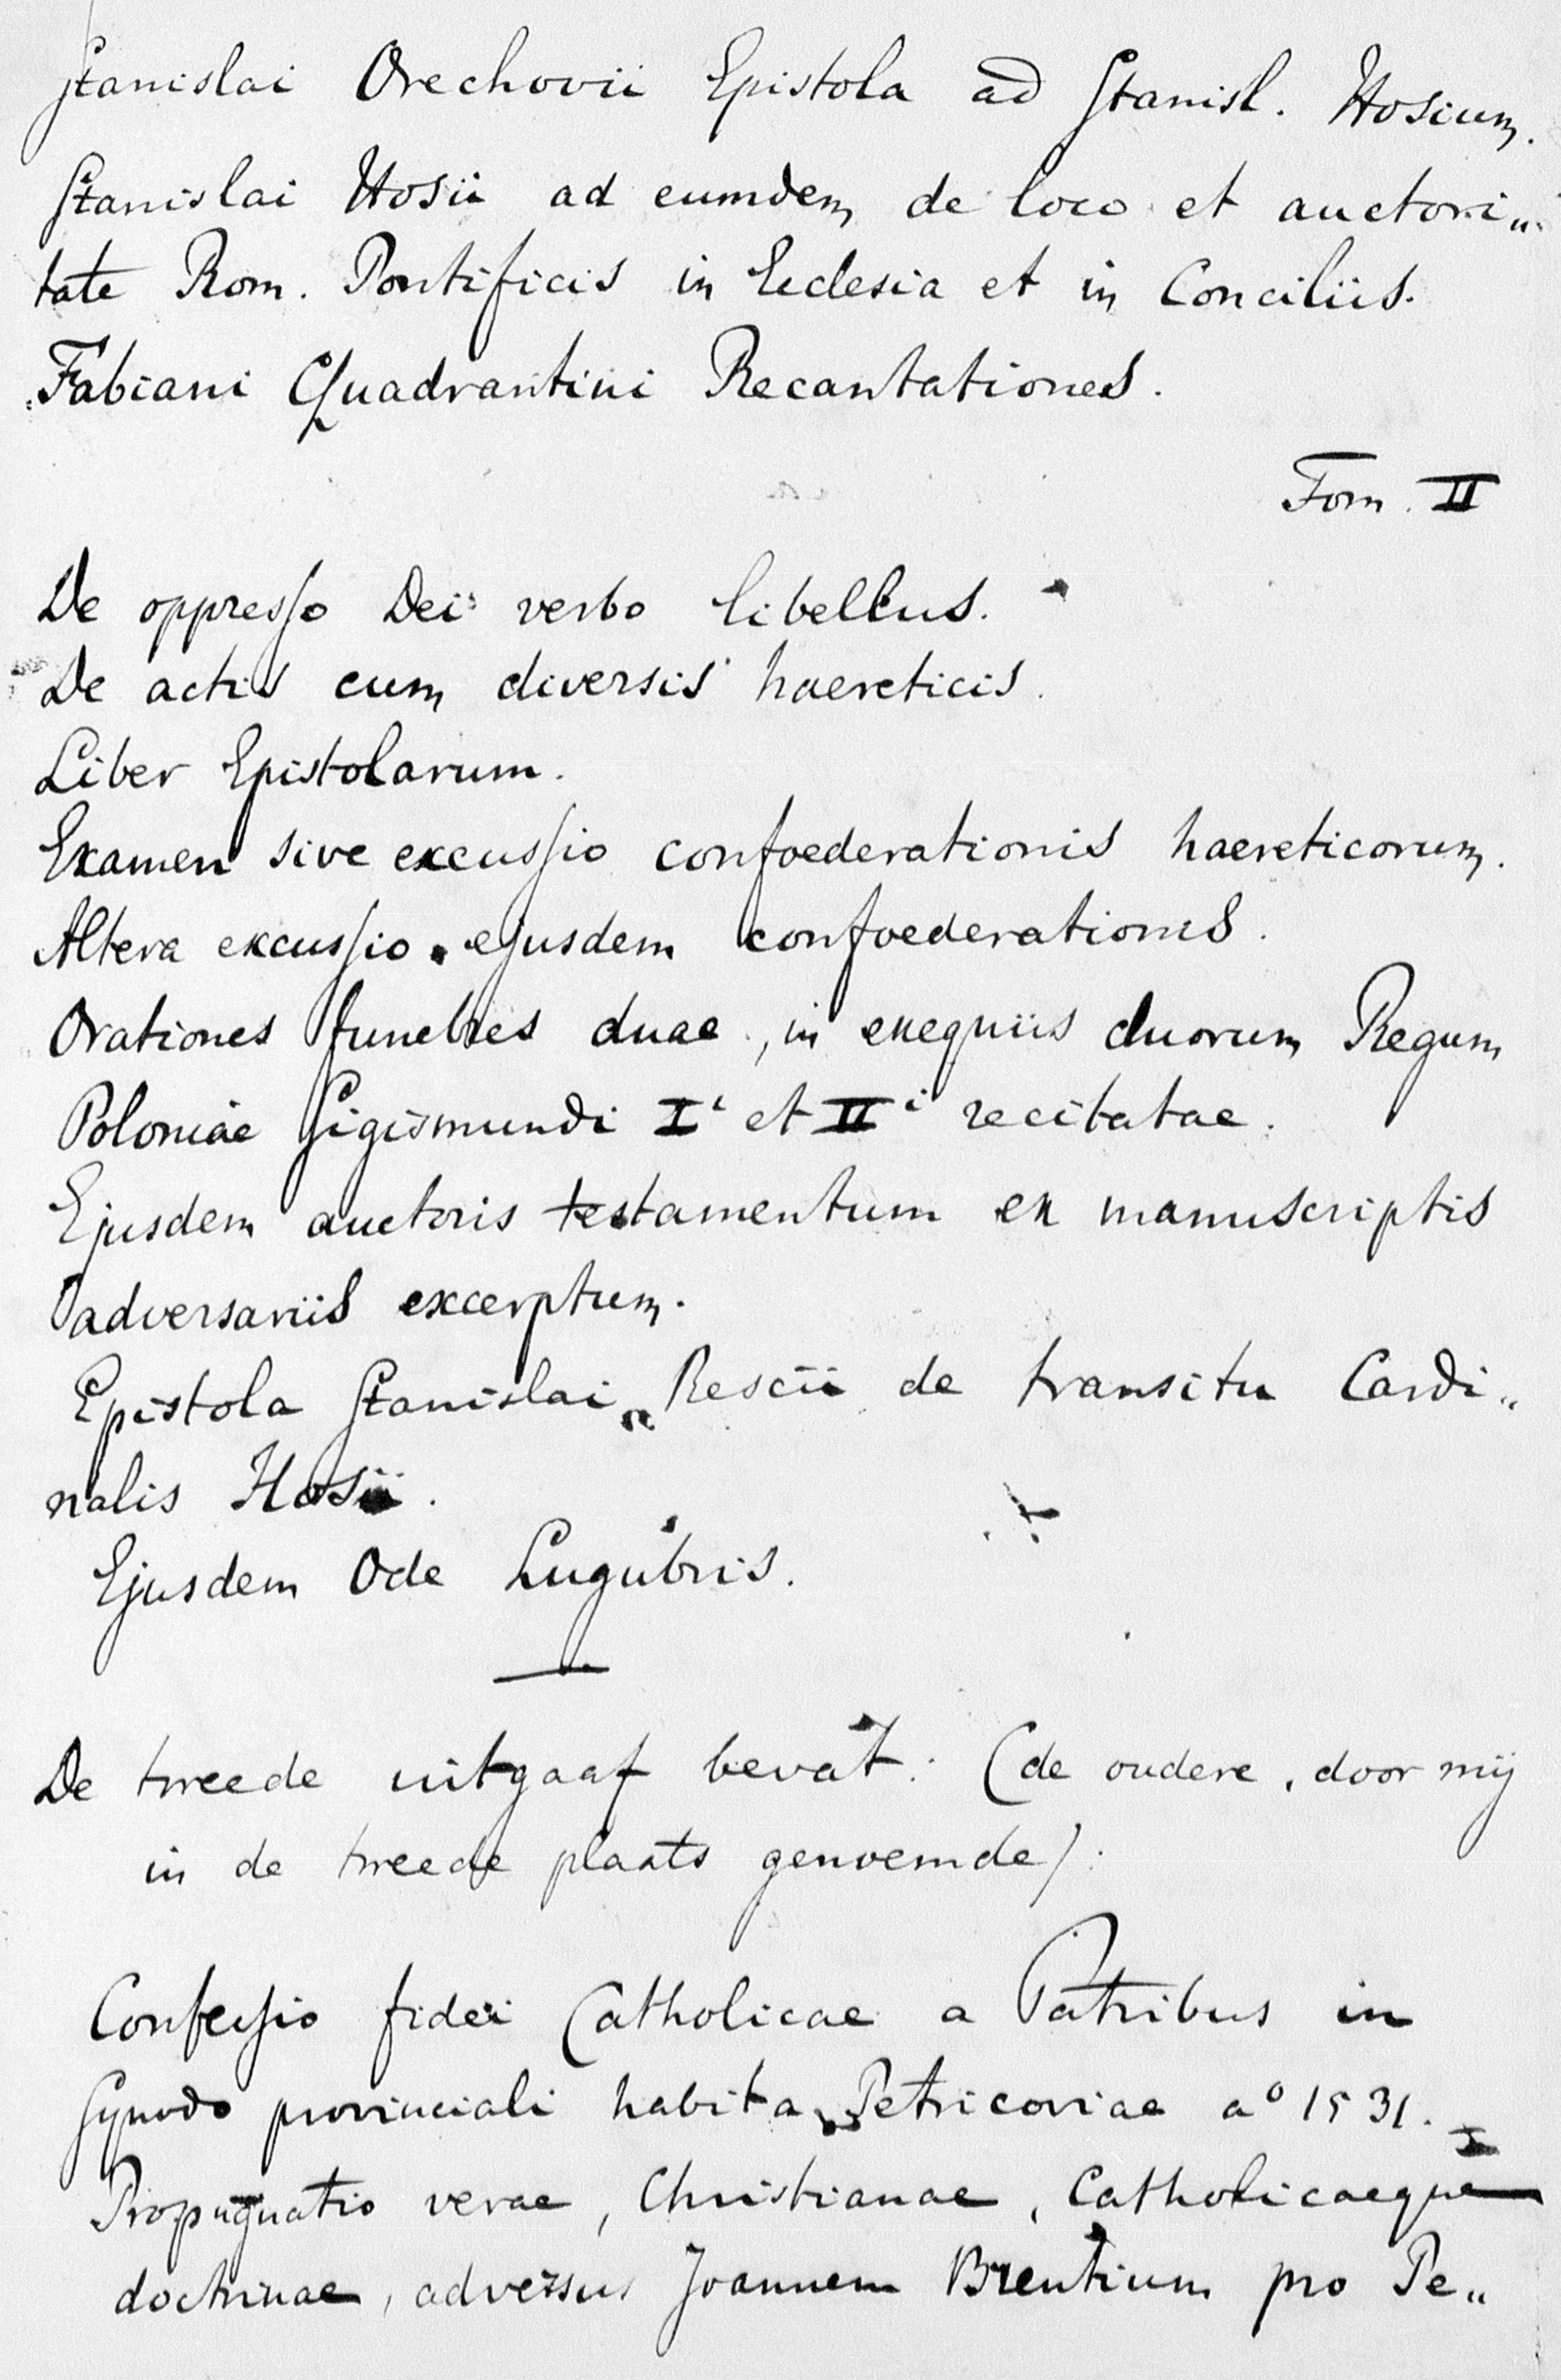 Stanislai Orechovii Epistola ad Stanisl. Hosium.
Stanislai Hosii ad eumdem de loco et auctori„
tate Rom. Pontificis in Ecclesia et in Conciliis.
Fabiani Quadrantini Recantationes.
Tom. II
De oppresso Dei verbo libellus.
De actis cum diversis haereticis.
Liber Epistolarum.
Examen sive excussio confoederationis haereticorum.
Altera excussio ejusdem confoederationis.
Orationes funebres duae, in exequiis duorum Regum
Poloniae Sigismundi Iⁱ et IIⁱ recitatae.
Ejusdem auctoris testamentum ex manuscriptis
adversariis excerptum.
Epistola Stanislai Rescii de transitu Cardi„
nalis Hosii.
Ejusdem Ode Lugubris.
De tweede uitgaaf bevat: (de oudere, door mij
in de tweede plaats genoemde):
Confessio fidei Catholicae a Patribus in
Synodo provinciali habita Petricoviae aº 1531.
Propugnatio verae, Christianae, Catholicaeque
doctrinae, adversus Joannem Brentium pro Pe„